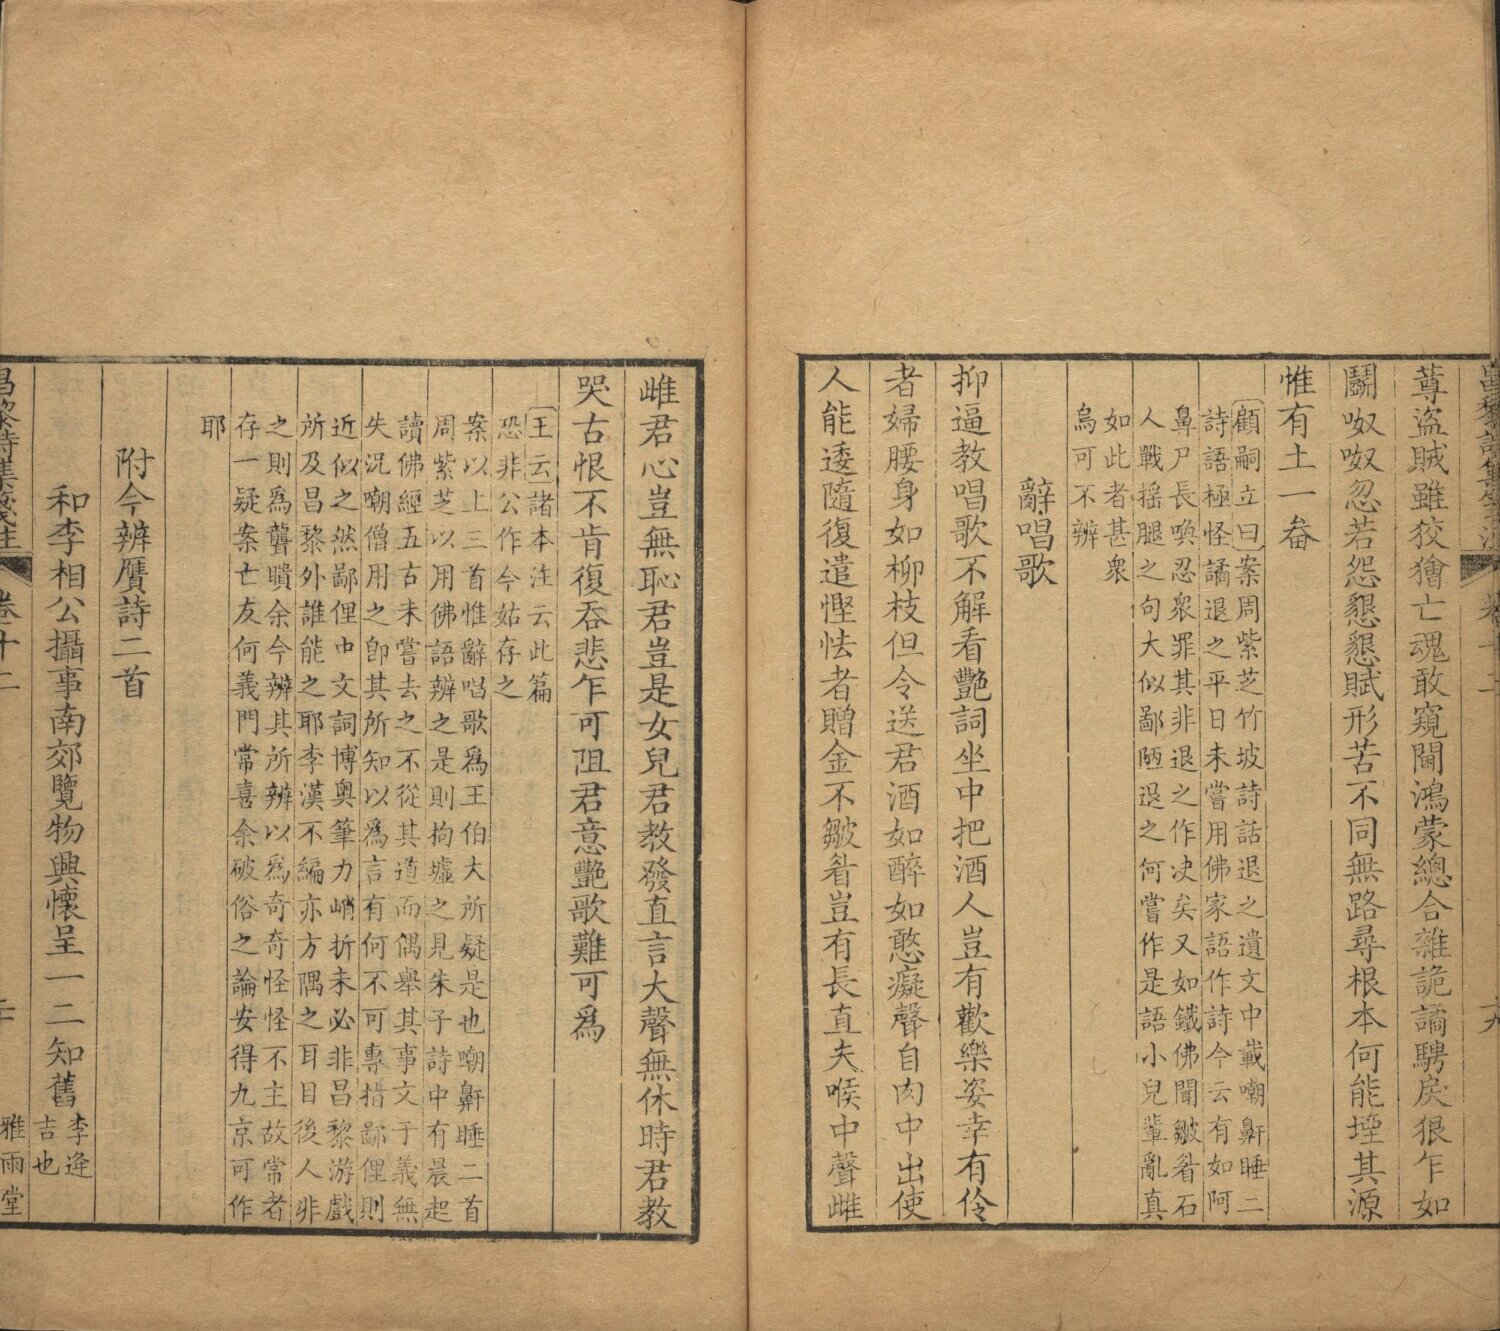 蓴盜賊雖狡獪亡魂敢窺閫鴻蒙總合雜詭譎騁戾狠乍如
鬬呶呶忽若怨懇懇賦形苦不同無路尋根本何能堙其源
惟有土一畚
顧嗣立曰案周紫芝竹坡詩話退之遺文中載嘲鼾睡二
詩語極怪譎退之平日未嘗用佛家語作詩今云有如阿
鼻尸長喚忍衆罪其非退之作决矣又如鐵佛聞皺眉石
人戰揺腿之句大似鄙陋退之何嘗作是語小兒輩亂真
如此者甚衆
烏可不辨
辭唱歌
抑逼教唱歌不解看艷詞坐中把酒人豈有歡樂姿幸有伶
者婦腰身如柳枝但令送君酒如醉如憨癡聲自肉中出使
人能逶隨復遣慳怯者贈金不皺眉豈有長直夫喉中聲雌
雌君心豈無恥君豈是女兒君教發直言大聲無休時君教
哭古恨不肯復吞悲乍可阻君意艷歌難可爲
王云諸本注云此篇
恐非公作今姑存之
案以上三首惟辭唱歌爲王伯大所疑是也嘲鼾睡二首
周紫芝以用佛語辨之是則拘墟之見朱子詩中有晨起
讀佛經五古未嘗去之不從其道而偶舉其事文子義無
失況嘲僧用之卽其所知以爲言有何不可專措鄙俚則
近似之然鄙俚中文詞博奥筆力峭折未必非昌黎游戲
所及昌黎外誰能之耶李漢不編亦方隅之耳目後人非
之則爲聾瞶余今辨其所辨以爲奇奇怪怪不主故常者
存一疑案亡友何義門常喜余破俗之論安得九京可作
耶
附今辨贋詩二首
和李相公攝事南郊覽物興懷呈一二知舊
李逄
吉也
昌黎詩集箋注
卷十二
二十
雅雨堂